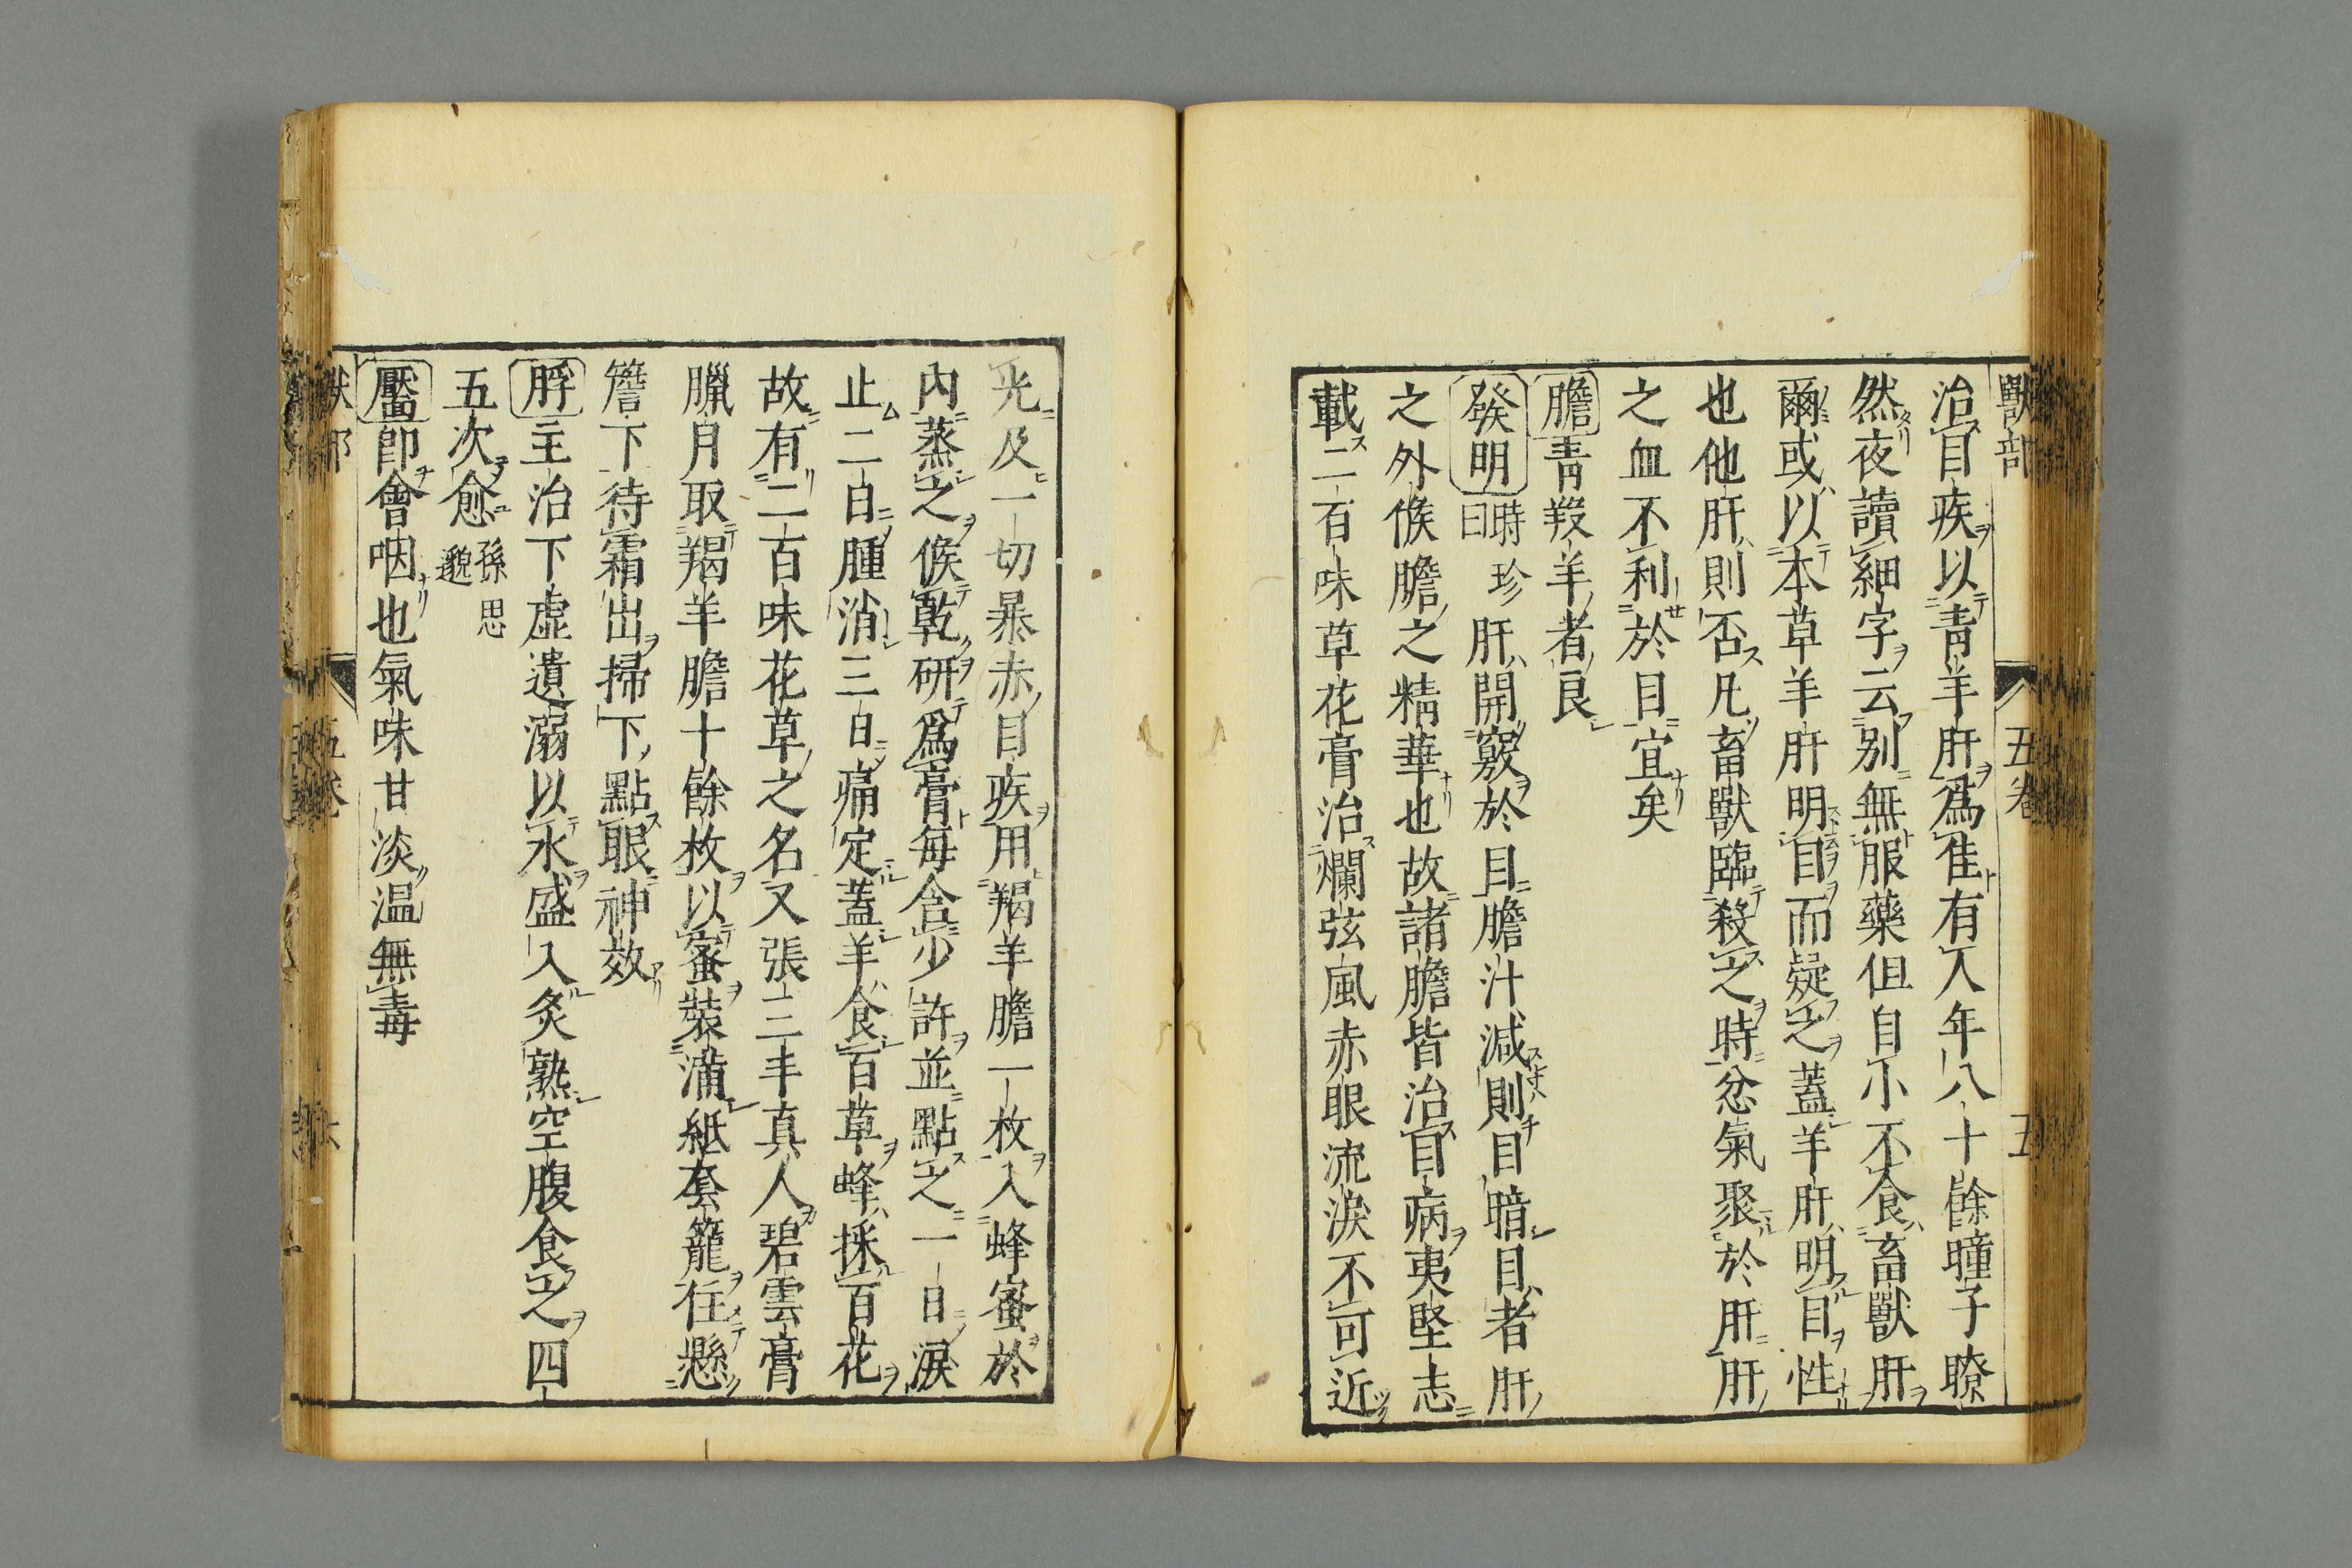 獸部 五卷 五
治目疾以青羊肝爲佳有人年八十餘瞳子瞭
然夜讀細字云别無服藥但自小不食畜獸肝
爾或以本草羊肝明目而疑之蓋羊肝明目性
也他肝則否凡畜獸臨殺之時忿氣聚於肝肝
之血不利於目宜矣
膽青羖羊者良
發明時珍曰肝開竅於目膽汁減則目暗目者肝
之外候膽之精華也故諸膽皆治目病夷堅志
載二百味草花膏治爛弦風赤眼流淚不可近
光及一切暴赤目疾用羯羊膽一枚入蜂蜜於
内蒸之候乾研爲膏每含少許並點之一日淚
止二日腫消三日痛定蓋羊食百草蜂採百花
故有二百味花草之名又張三丰真人碧雲膏
臘月取羯羊膽十餘枚以蜜裝滿紙套籠住懸
簷下待霜出掃下點眼神效
脬主治下虛遺溺以水盛入炙熟空腹食之四
五次愈孫思邈
靨卽會咽也氣味甘淡温無毒
獸部 五卷 六